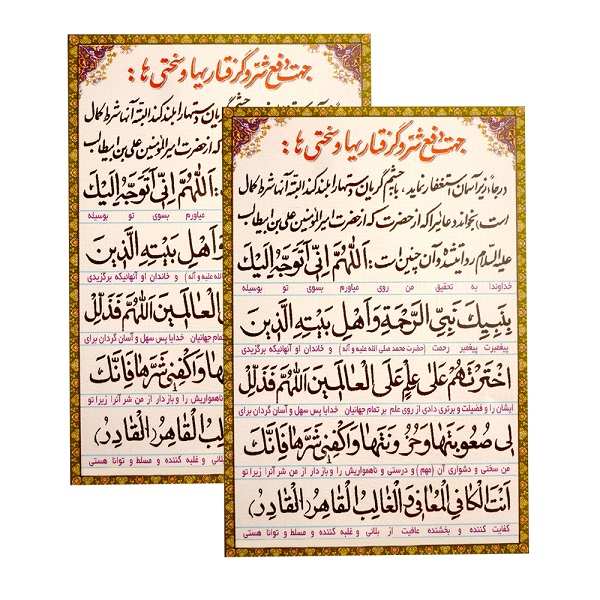 جهت دفع شر و گرفتاریها و سختی ها:
در جا، زیر آسمان استغفار نماید، با چشم گریان و ستها را بلند کند البته آنها شرط کمال
است، بخواند دعائیرا که از حضرت که از حضرت امیرالمؤمنین علی بن ابیطالب
علیه السلام روایتشده و آن چنین است: اَللّٰهُمَّ اِنّی اَتَوَجَّهُ اِلَیْكَ
خداوندا به تحقیق من روی میاورم بسوی تو بوسیله
بِنَبِیِّكَ نَبِیِّ الرَّحْمَةِ وَ اَهْلِ بَیْتِهِ الَّذینَ
پیغمبرت پیغمبر رحمت (حضرت محمد صلی الله علیه و آله) و خاندان او آنهائیکه برگزیدی
اخْتَرْتَهُمْ عَلیٰ عِلْمٍ عَلَی الْعالَمینَ اَللّٰهُمَّ فَذَلِّلْ
ایشان را و فضیلت و برتری دادی از روی علم بر تمام جهانیان خدایا پس سهل و آسان گردان برای
لی صُعُوبَتَها وَ حُزُونَتَها وَ اكْفِنی شَرَّها فَاِنَّكَ
من سختی و دشواری آن (مهم) و درستی و ناهمواریش را و باز دار از من شر آنرا زیرا تو
اَنْتَ الْكافِی الْمُعافی وَ الْغالِبُ الْقاهِرُ (الْقادِرُ)
کفایت کننده و بخشنده عافیت از بلائی و غلبه کننده و مسلط و توانا هستی